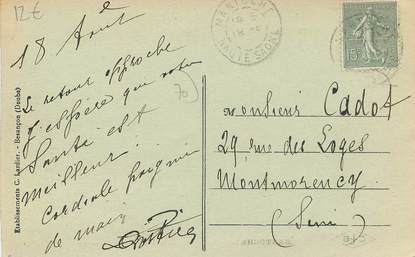 12€
18 Août
Le retour approche
j'espère que votre
Santé est
meilleur.
Cordiale poignée
de main
70
Etablissements C. Lardier. - Besançon (Doubs)
HAUTE SAÔNE
15
Monsieur Cadot
29 rue des Loges
Montmorency
(Seine)